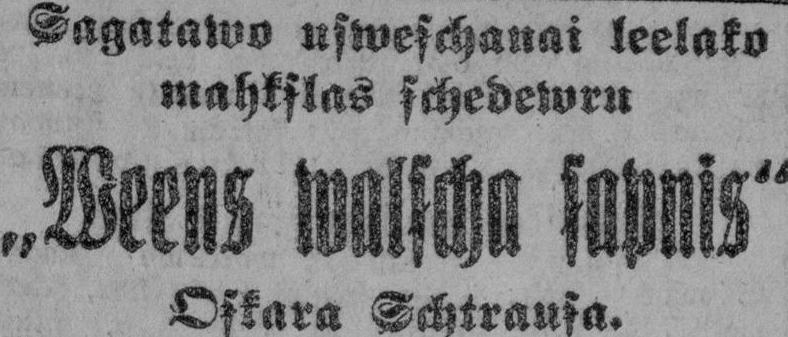 Sagatawo uſweſchanai leelako
mahkſlas ſchedewru
„Weens walſcha ſapnis“
Oſkara Schtrauſa.